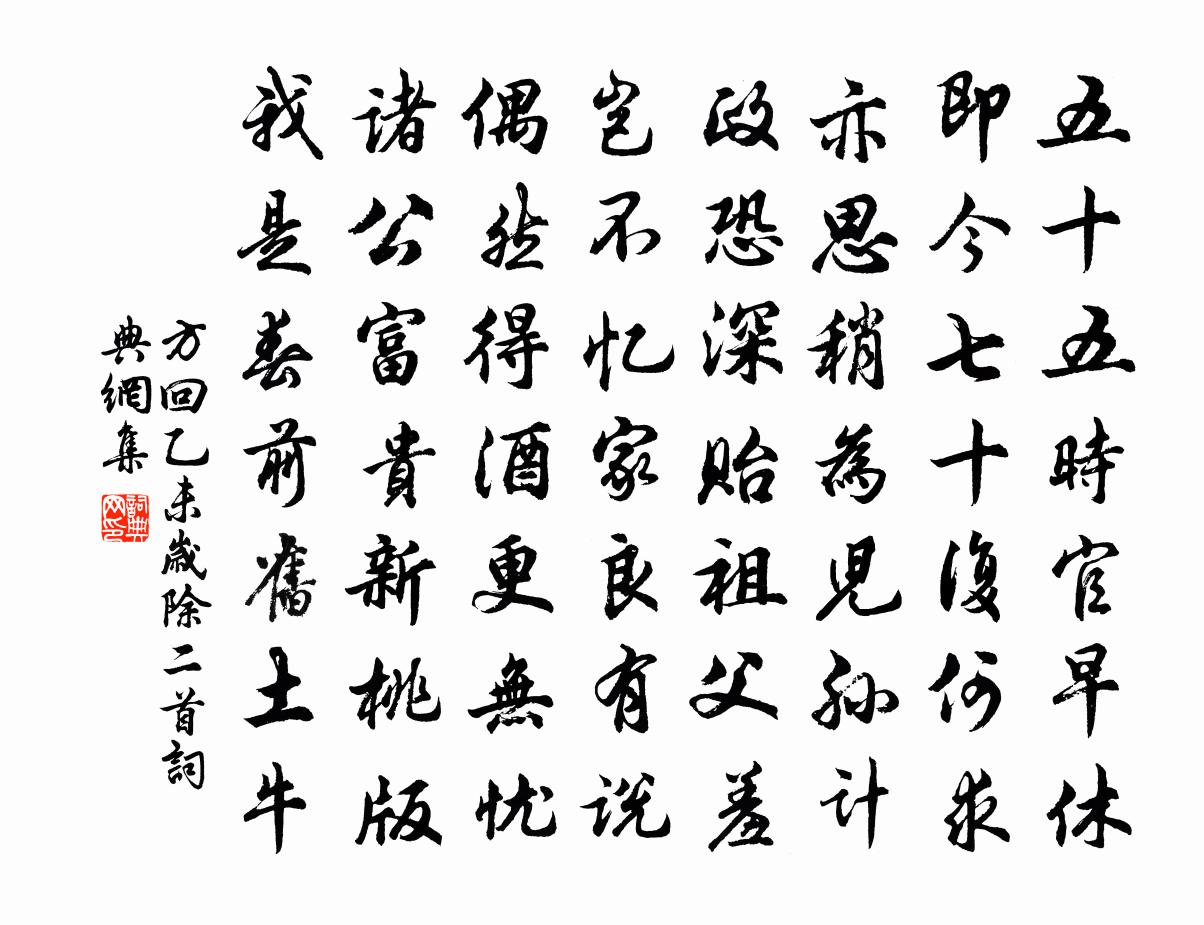 五十五時官早休
即今七十復何求
亦思稍為児孫計
政恐深貽祖父羞
岂不忆家良有说
偶然得酒更無忧
诸公富貴新桃版
我是春前舊土牛
方回乙未歲除二首詞
典網集
詞典
网印